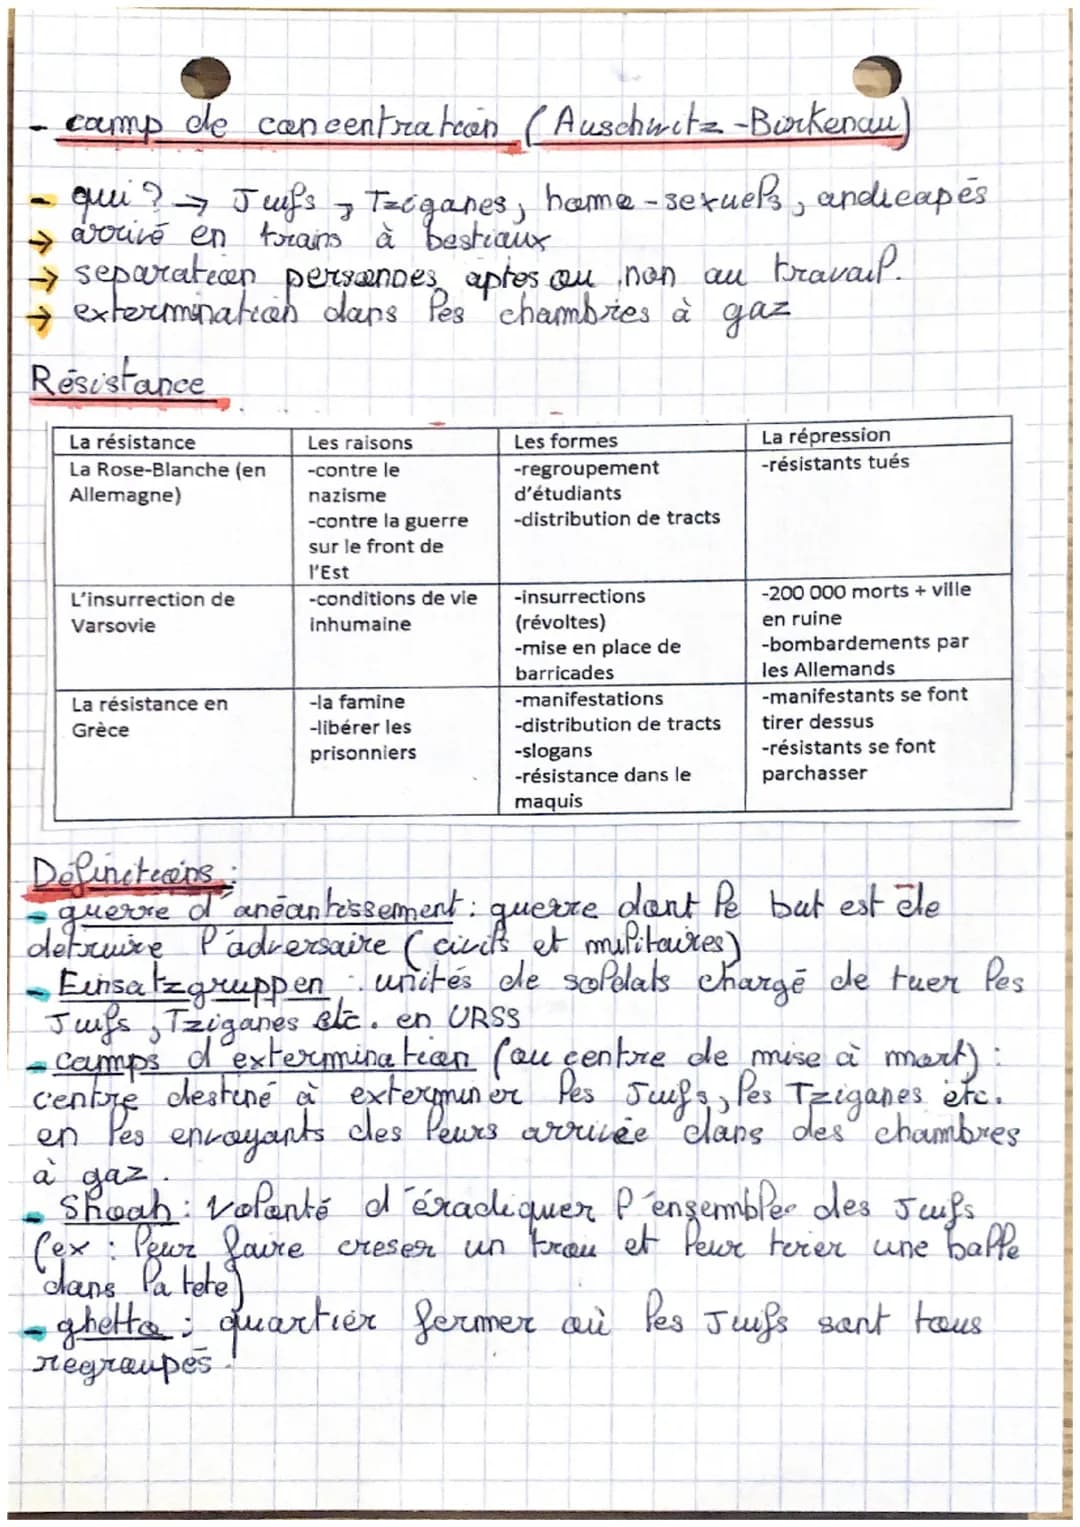 - camp de concentration (Auschwitz-Birkenau)
- qui ? → Juifs, Tziganes, homme-sexuels, andicapés
→ arrivé en trains à bestiaux
→ séparation personnes aptes ou non au travail.
→ extermination dans les chambres à gaz
Résistance
La résistance | Les raisons | Les formes | La répression
La Rose-Blanche (en Allemagne) | -contre le nazisme -contre la guerre sur le front de l'Est | -regroupement d'étudiants -distribution de tracts | -résistants tués
L'insurrection de Varsovie | -conditions de vie inhumaine | -insurrections (révoltes) -mise en place de barricades | -200 000 morts + ville en ruine -bombardements par les Allemands
La résistance en Grèce | -la famine -libérer les prisonniers | -manifestations -distribution de tracts -slogans -résistance dans le maquis | -manifestants se font tirer dessus -résistants se font parchasser
Définitions :
- guerre d'anéantissement : guerre dont le but est de
detruire l'adversaire (civils et militaires)
- Einsatzgruppen : unités de soldats chargé de tuer les
Juifs, Tziganes etc. en URSS
- camps d'extermination (ou centre de mise à mort) :
centre destiné à exterminer les Juifs, les Tziganes etc.
en les envoyants dès leurs arrivée dans des chambres
à gaz.
- Shoah : volonté d'éradiquer l'ensemble des Juifs
(ex : leur faire creser un trou et leur tirer une balle
dans la tete)
- ghetto : quartier fermer où les Juifs sont tous
regroupés.